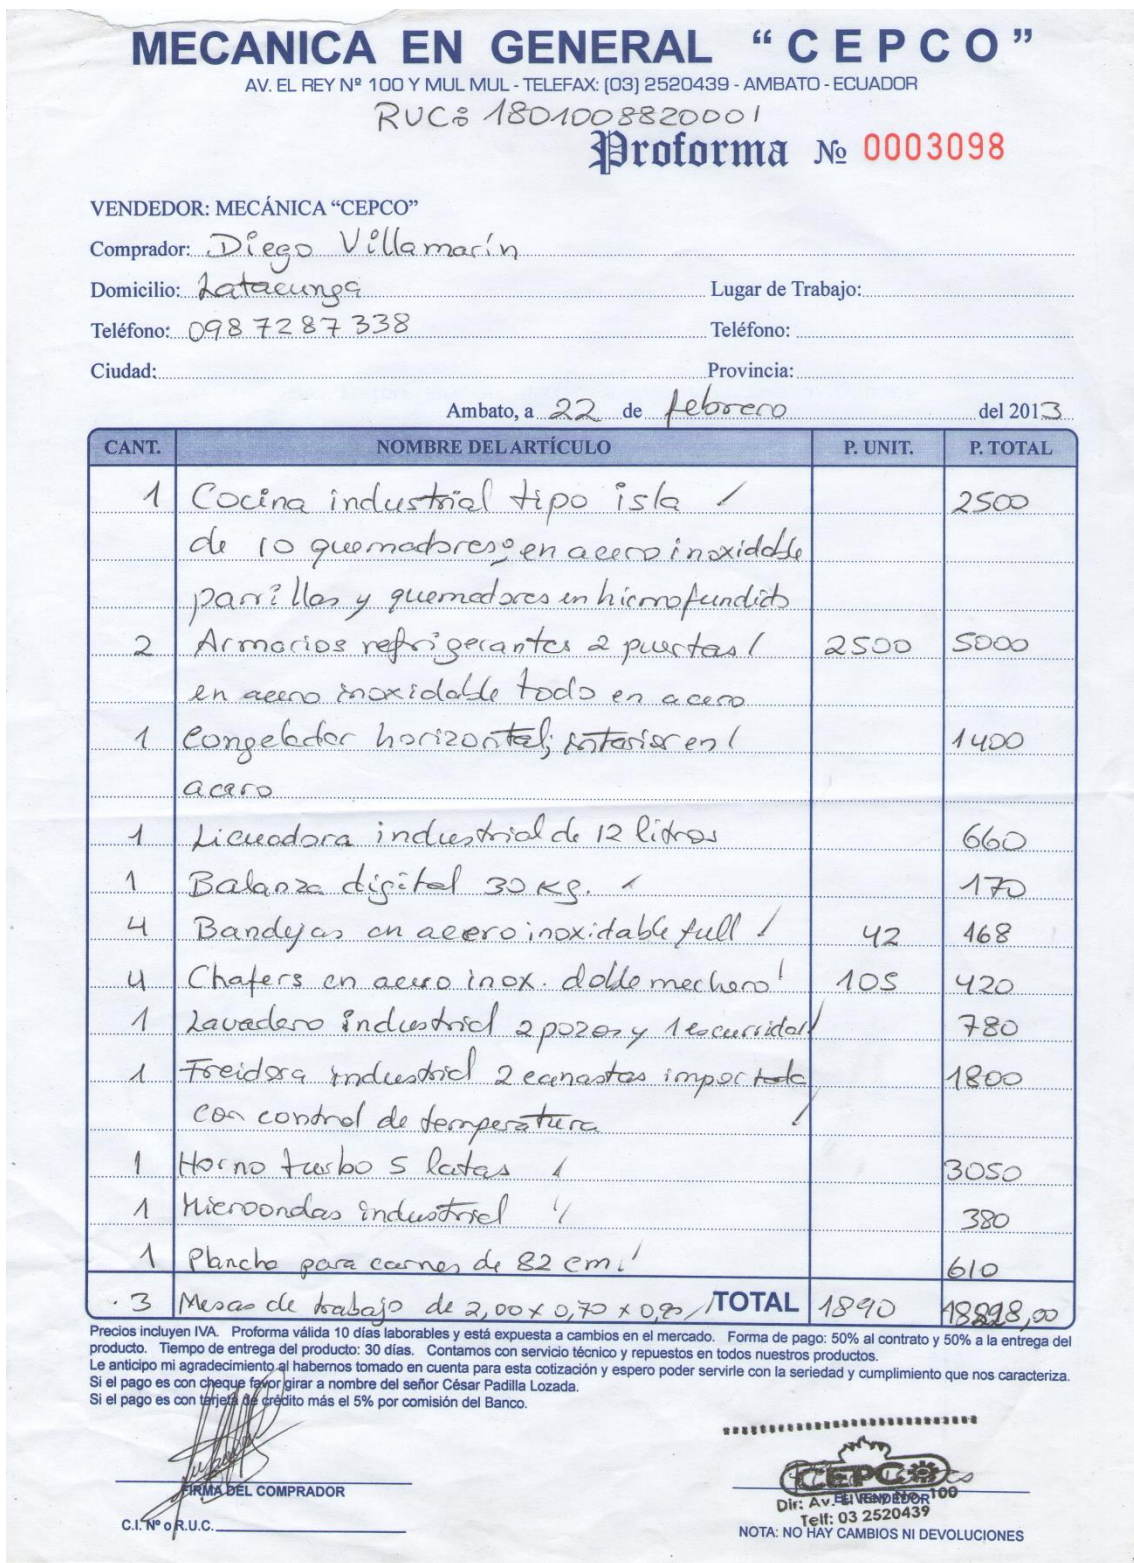 MECANICA EN GENERAL “CEPCO”
AV. EL REY Nº 100 Y MUL MUL - TELEFAX: (03) 2520439 - AMBATO - ECUADOR
RUC: 1801008820001
Proforma № 0003098
VENDEDOR: MECÁNICA “CEPCO”
Comprador: Diego Villamarín
Domicilio: Latacunga Lugar de Trabajo:
Teléfono: 0987287338 Teléfono:
Ciudad: Provincia:
Ambato, a 22 de febrero del 2013
CANT. NOMBRE DEL ARTÍCULO P. UNIT. P. TOTAL
1 Cocina industrial tipo isla / 2500
de 10 quemadores; en acero inoxidable
parrillas y quemadores en hierro fundido
2 Armarios refrigerantes 2 puertas / 2500 5000
en acero inoxidable todo en acero
1 Congelador horizontal; interior en / 1400
acero
1 Licuadora industrial de 12 litros 660
1 Balanza digital 30 Kg. / 170
4 Bandejas en acero inoxidable full / 42 168
4 Chafers en acero inox. doble mechero / 105 420
1 Lavadero industrial 2 pozos y 1 escurridor / 780
1 Freidora industrial 2 canastas importada 1800
con control de temperatura /
1 Horno turbo 5 latas / 3050
1 Microondas industrial / 380
1 Plancha para carnes de 82 cm. / 610
3 Mesas de trabajo de 2,00 x 0,70 x / TOTAL 1890
Precios incluyen IVA. Proforma válida 10 días laborables y está expuesta a cambios en el mercado. Forma de pago: 50% al contrato y 50% a la entrega del
producto. Tiempo de entrega del producto: 30 días. Contamos con servicio técnico y repuestos en todos nuestros productos.
Le anticipo mi agradecimiento al habernos tomado en cuenta para esta cotización y espero poder servirle con la seriedad y cumplimiento que nos caracteriza.
Si el pago es con cheque favor girar a nombre del señor César Padilla Lozada.
Si el pago es con tarjeta de crédito más el 5% por comisión del Banco.
CEPCO
FIRMA DEL COMPRADOR EL VENDEDOR
Dir: Av. El Rey No. 100
Telf: 03 2520439
C.I. Nº o R.U.C. NOTA: NO HAY CAMBIOS NI DEVOLUCIONES